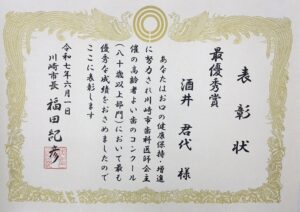 表彰状
最優秀賞
酒井 君代 様
あなたはお口の健康保持・増進
に努力され川崎市歯科医師会主
催の高齢者よい歯のコンクール
(八十歳以上部門)において最も
優秀な成績をおさめましたので
ここに表彰します
令和七年六月一日
川崎市長 福田紀彦